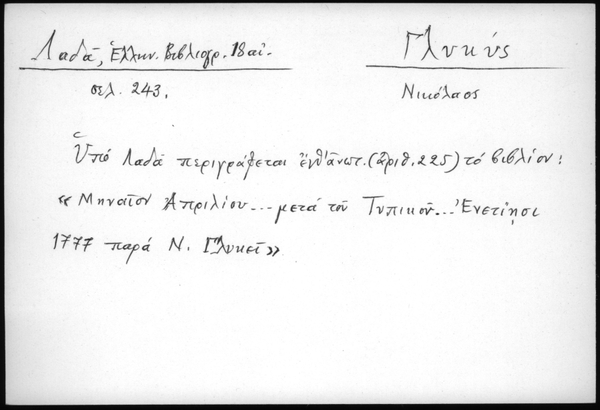 Λαδᾶ, Ἑλλην. Βιβλιογρ. 18 αἰ.
Γλυκύς
σελ. 243.
Νικόλαος
Ὑπό Λαδᾶ περιγράφεται (ἀριθ. 225) τό βιβλίον:
« Μηναῖον Ἀπριλίου... μετά τοῦ Τυπικοῦ... Ἐνετίῃσι
1777 παρά Ν. Γλυκεῖ »